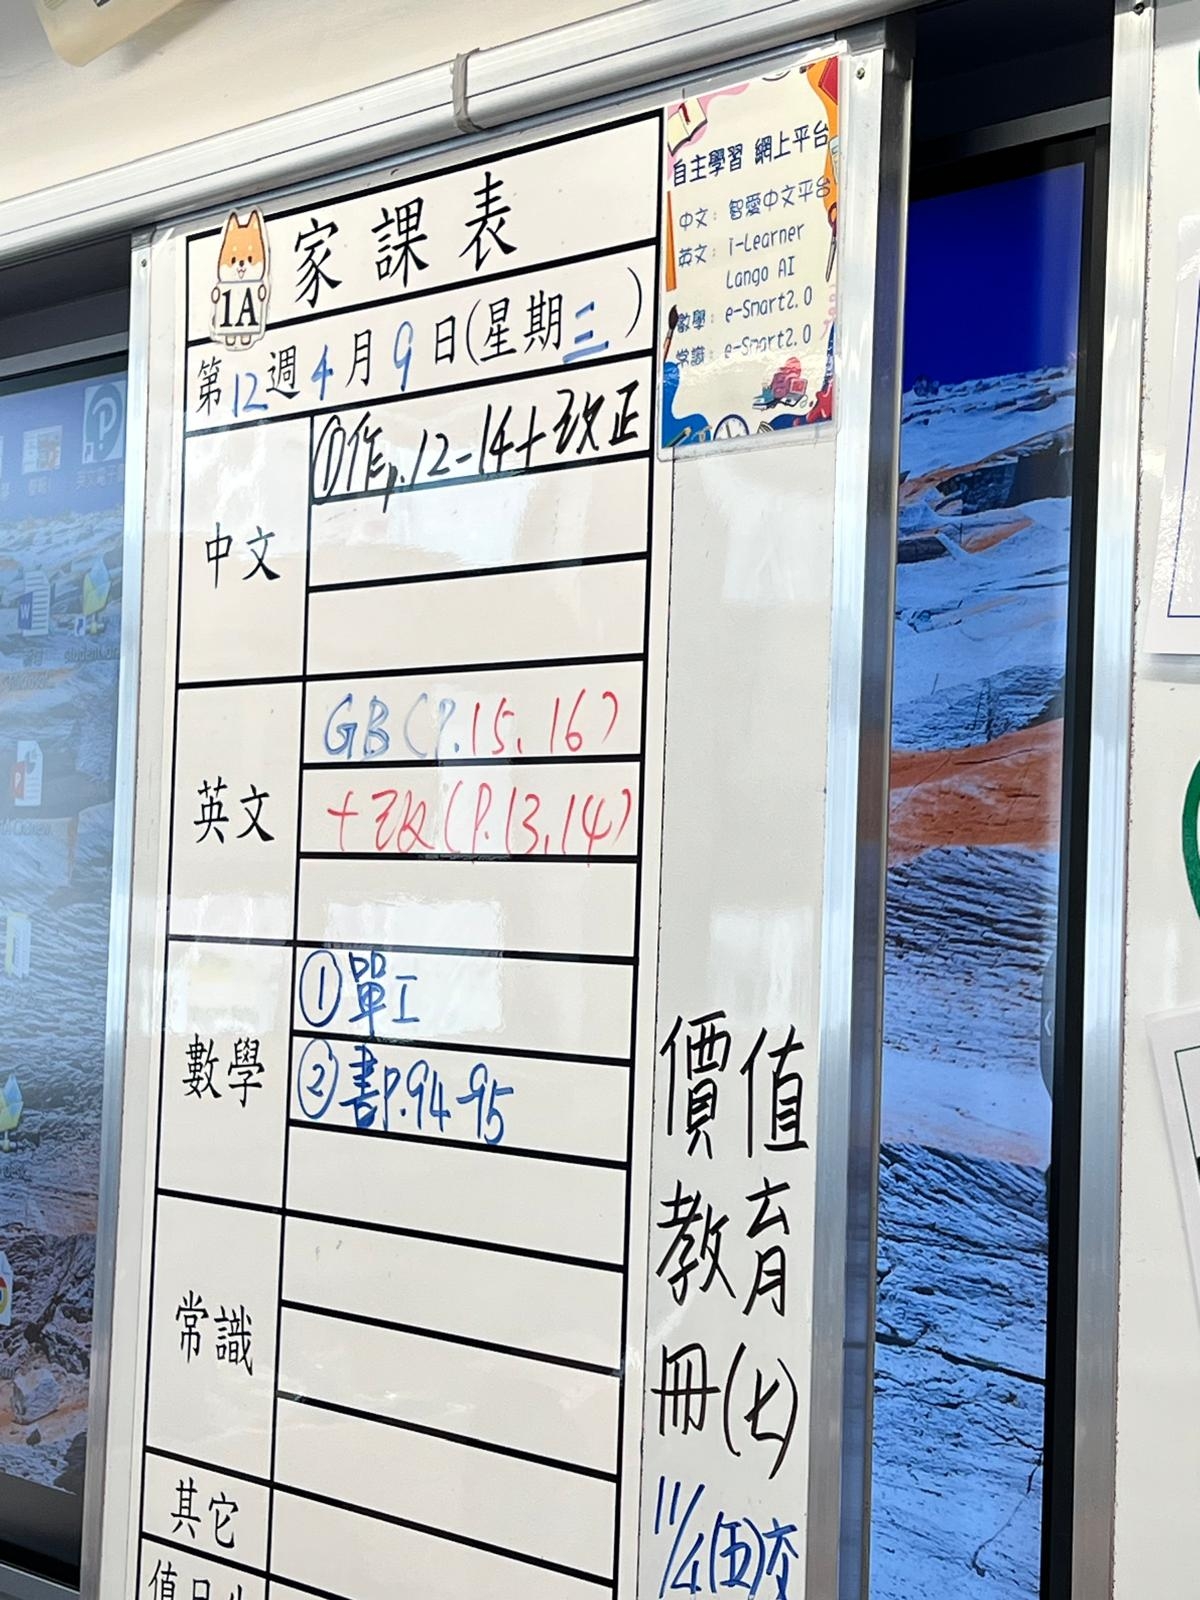 家課表
1A
第12週4月9日(星期三)
中文
①作p.12-14+改正
英文
GB(P.15, 16)
+改(P.13,14)
數學
①單工
②書P.94-95
常識
其它
自主學習 網上平台
中文: 智愛中文平台
英文: i-Learner
Lango AI
數學: e-Smart2.0
常識: e-Smart2.0
價值
教育
冊(七)
11/4(五)交